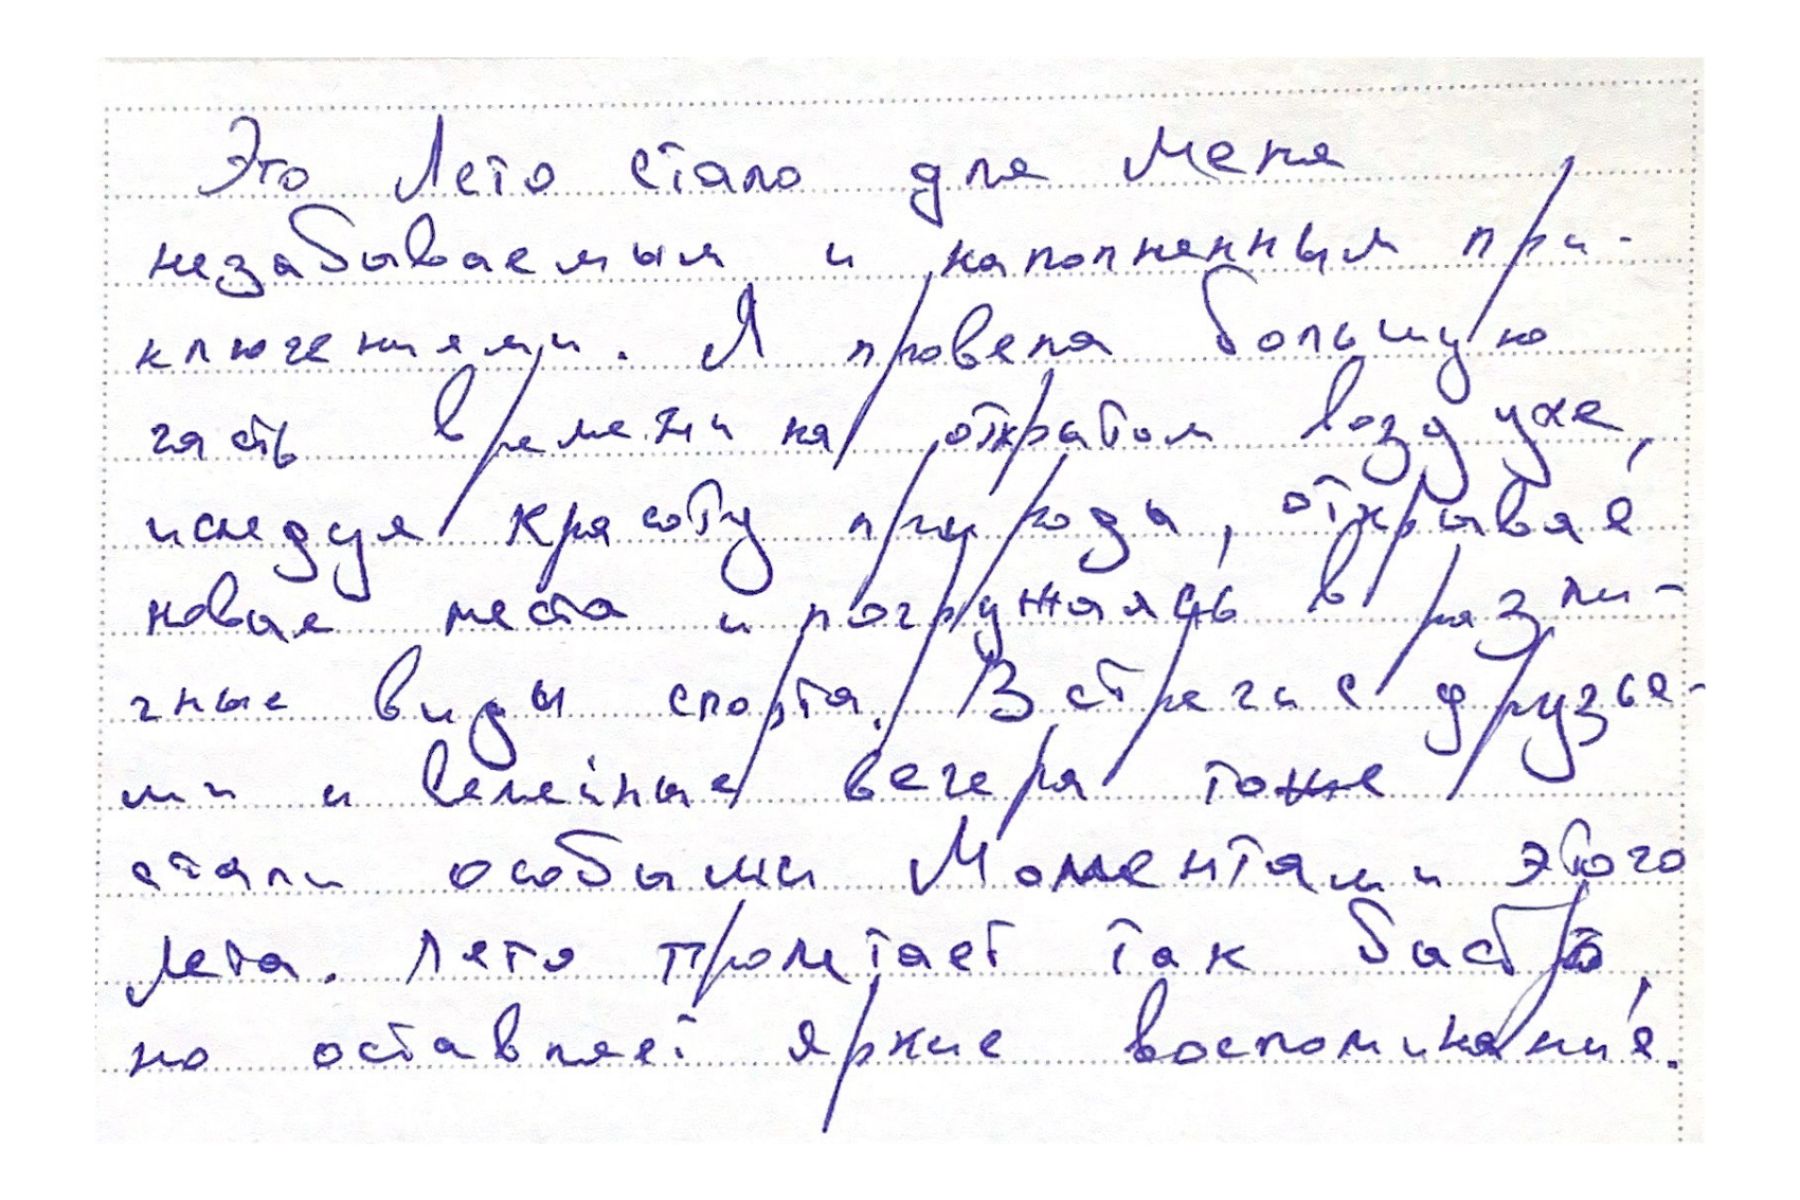 Это Лето стало для Меня
незабываемым и наполненным при-
ключениями. Я провела большую
часть времени на открытом воздухе,
исследуя красоту природы, открывая
новые места и погружаясь в разли-
чные виды спорта. Встречи с друзья-
ми и семейные вечера тоже
стали особыми Моментами этого
Лета. Лето пролетает так быстро,
но оставляет яркие воспоминания.